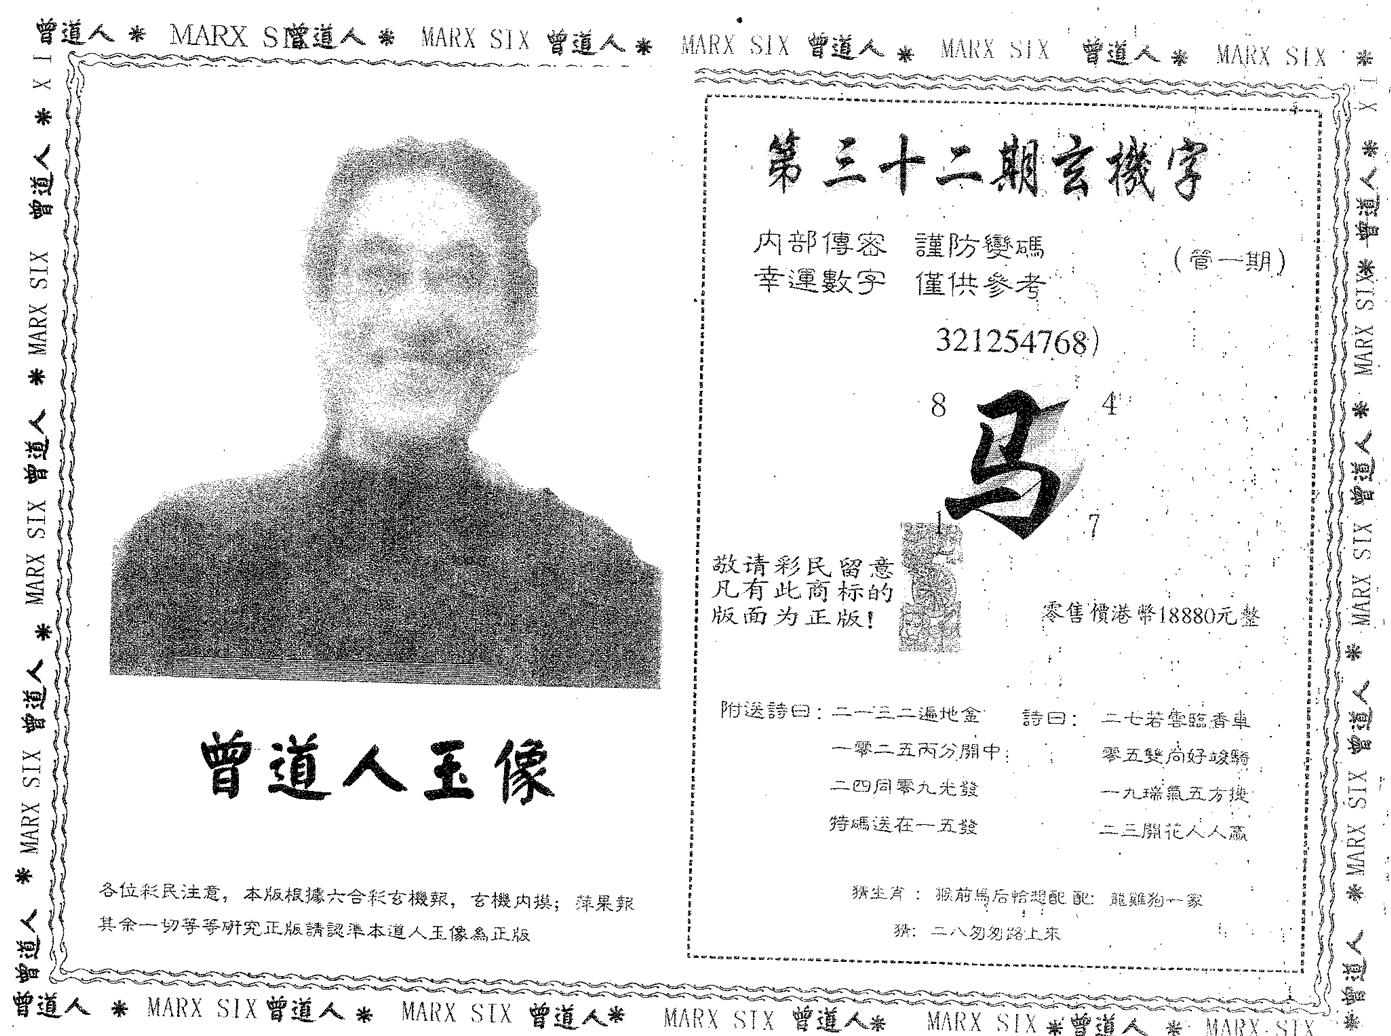 曾道人 * MARX SIX 曾道人 * MARX SIX 曾道人 * MARX SIX 曾道人 * MARX SIX 曾道人 * MARX SIX *
曾道人 * MARX SIX 曾道人 * MARX SIX 曾道人 * MARX SIX 曾道人 * X I
曾道人玉像
各位彩民注意，本版根據六合彩玄機報，玄機内摸；萍果報
其余一切等等研究正版請認準本道人玉像為正版
第三十二期玄機字
内部傳密 謹防變碼
幸運數字 僅供參考
(管一期)
321254768)
8 4
马
1 7
敬请彩民留意
凡有此商标的
版面为正版!
零售價港幣18880元整
附送詩曰：二一三二遍地金
一零二五丙分開中
二四同零九光發
特碼送在一五發
詩曰：二七若雲臨香車
零五雙尚好竣騎
一九瑞氣五方捷
二三開花人人贏
猜生肖：猴前馬后恰想配 配：龍雞狗一家
猜：二八匆匆路上來
X I * 曾道人 * MARX SIX 曾道人 * MARX SIX 曾道人 * MARX SIX 曾道人 *
曾道人 * MARX SIX 曾道人 * MARX SIX 曾道人 * MARX SIX 曾道人 * MARX SIX * 曾道人 * MARX SIX